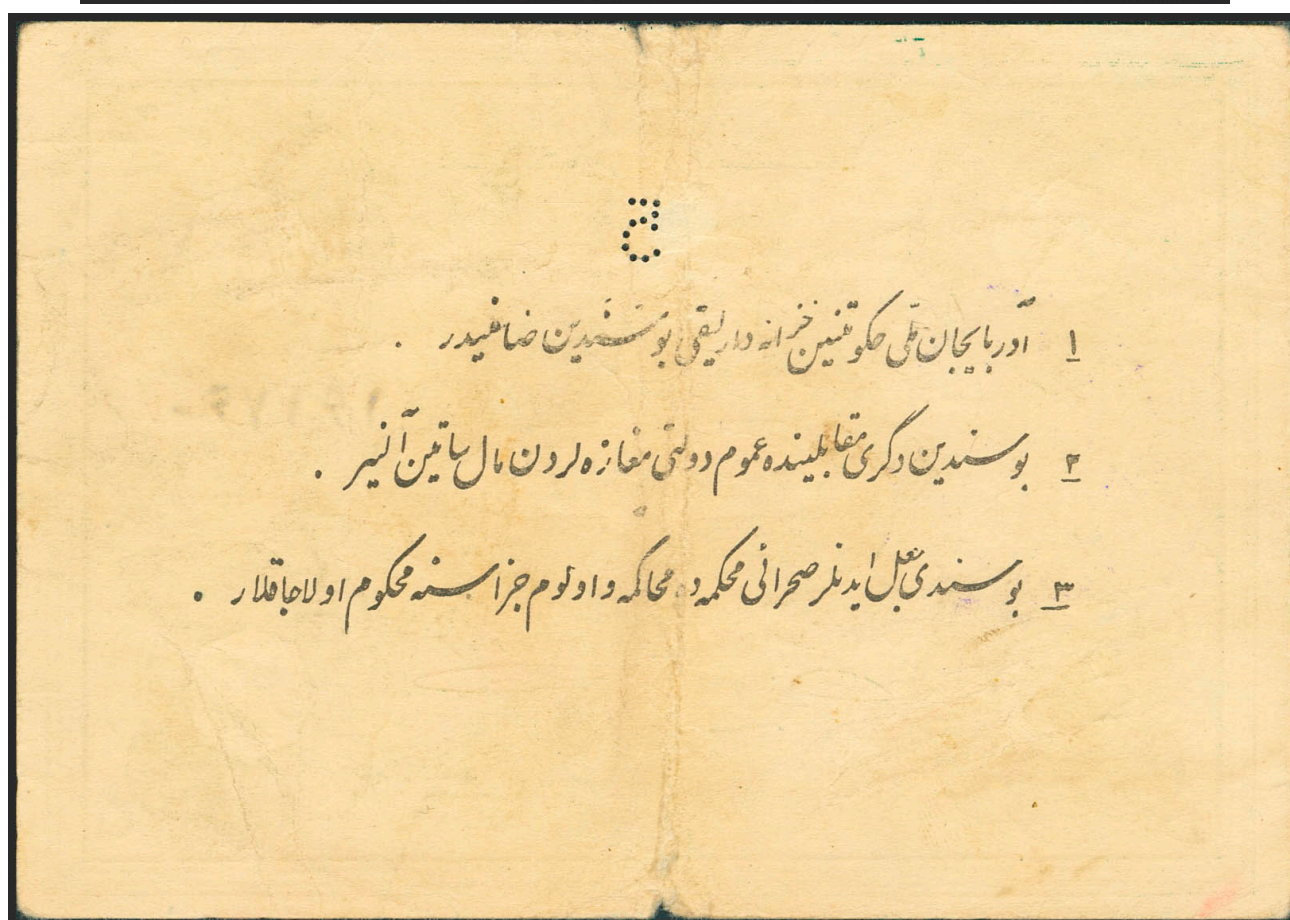 ۱ آذربایجان ملی حکومتنین خزانه دارلیقی بو سندین ضامنیدر .
۲ بو سندین دگری مقابلینده عموم دولتی مغازه لردن مال ساتین آلنیر .
۳ بو سندی جعل ایدنلر صحرائی محکمه ده محاکمه و اولوم جزاسنه محکوم اولاجاقلار .